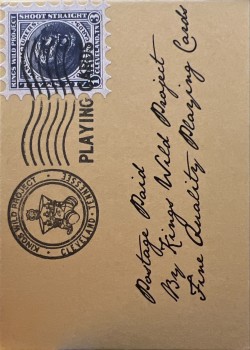 SHOOT STRAIGHT
KINGS WILD PROJECT
PLAYING CARDS
KINGS WILD PROJECT
CLEVELAND
TENNESSEE
Postage Paid
By Kings Wild Project
Fine Quality Playing Cards